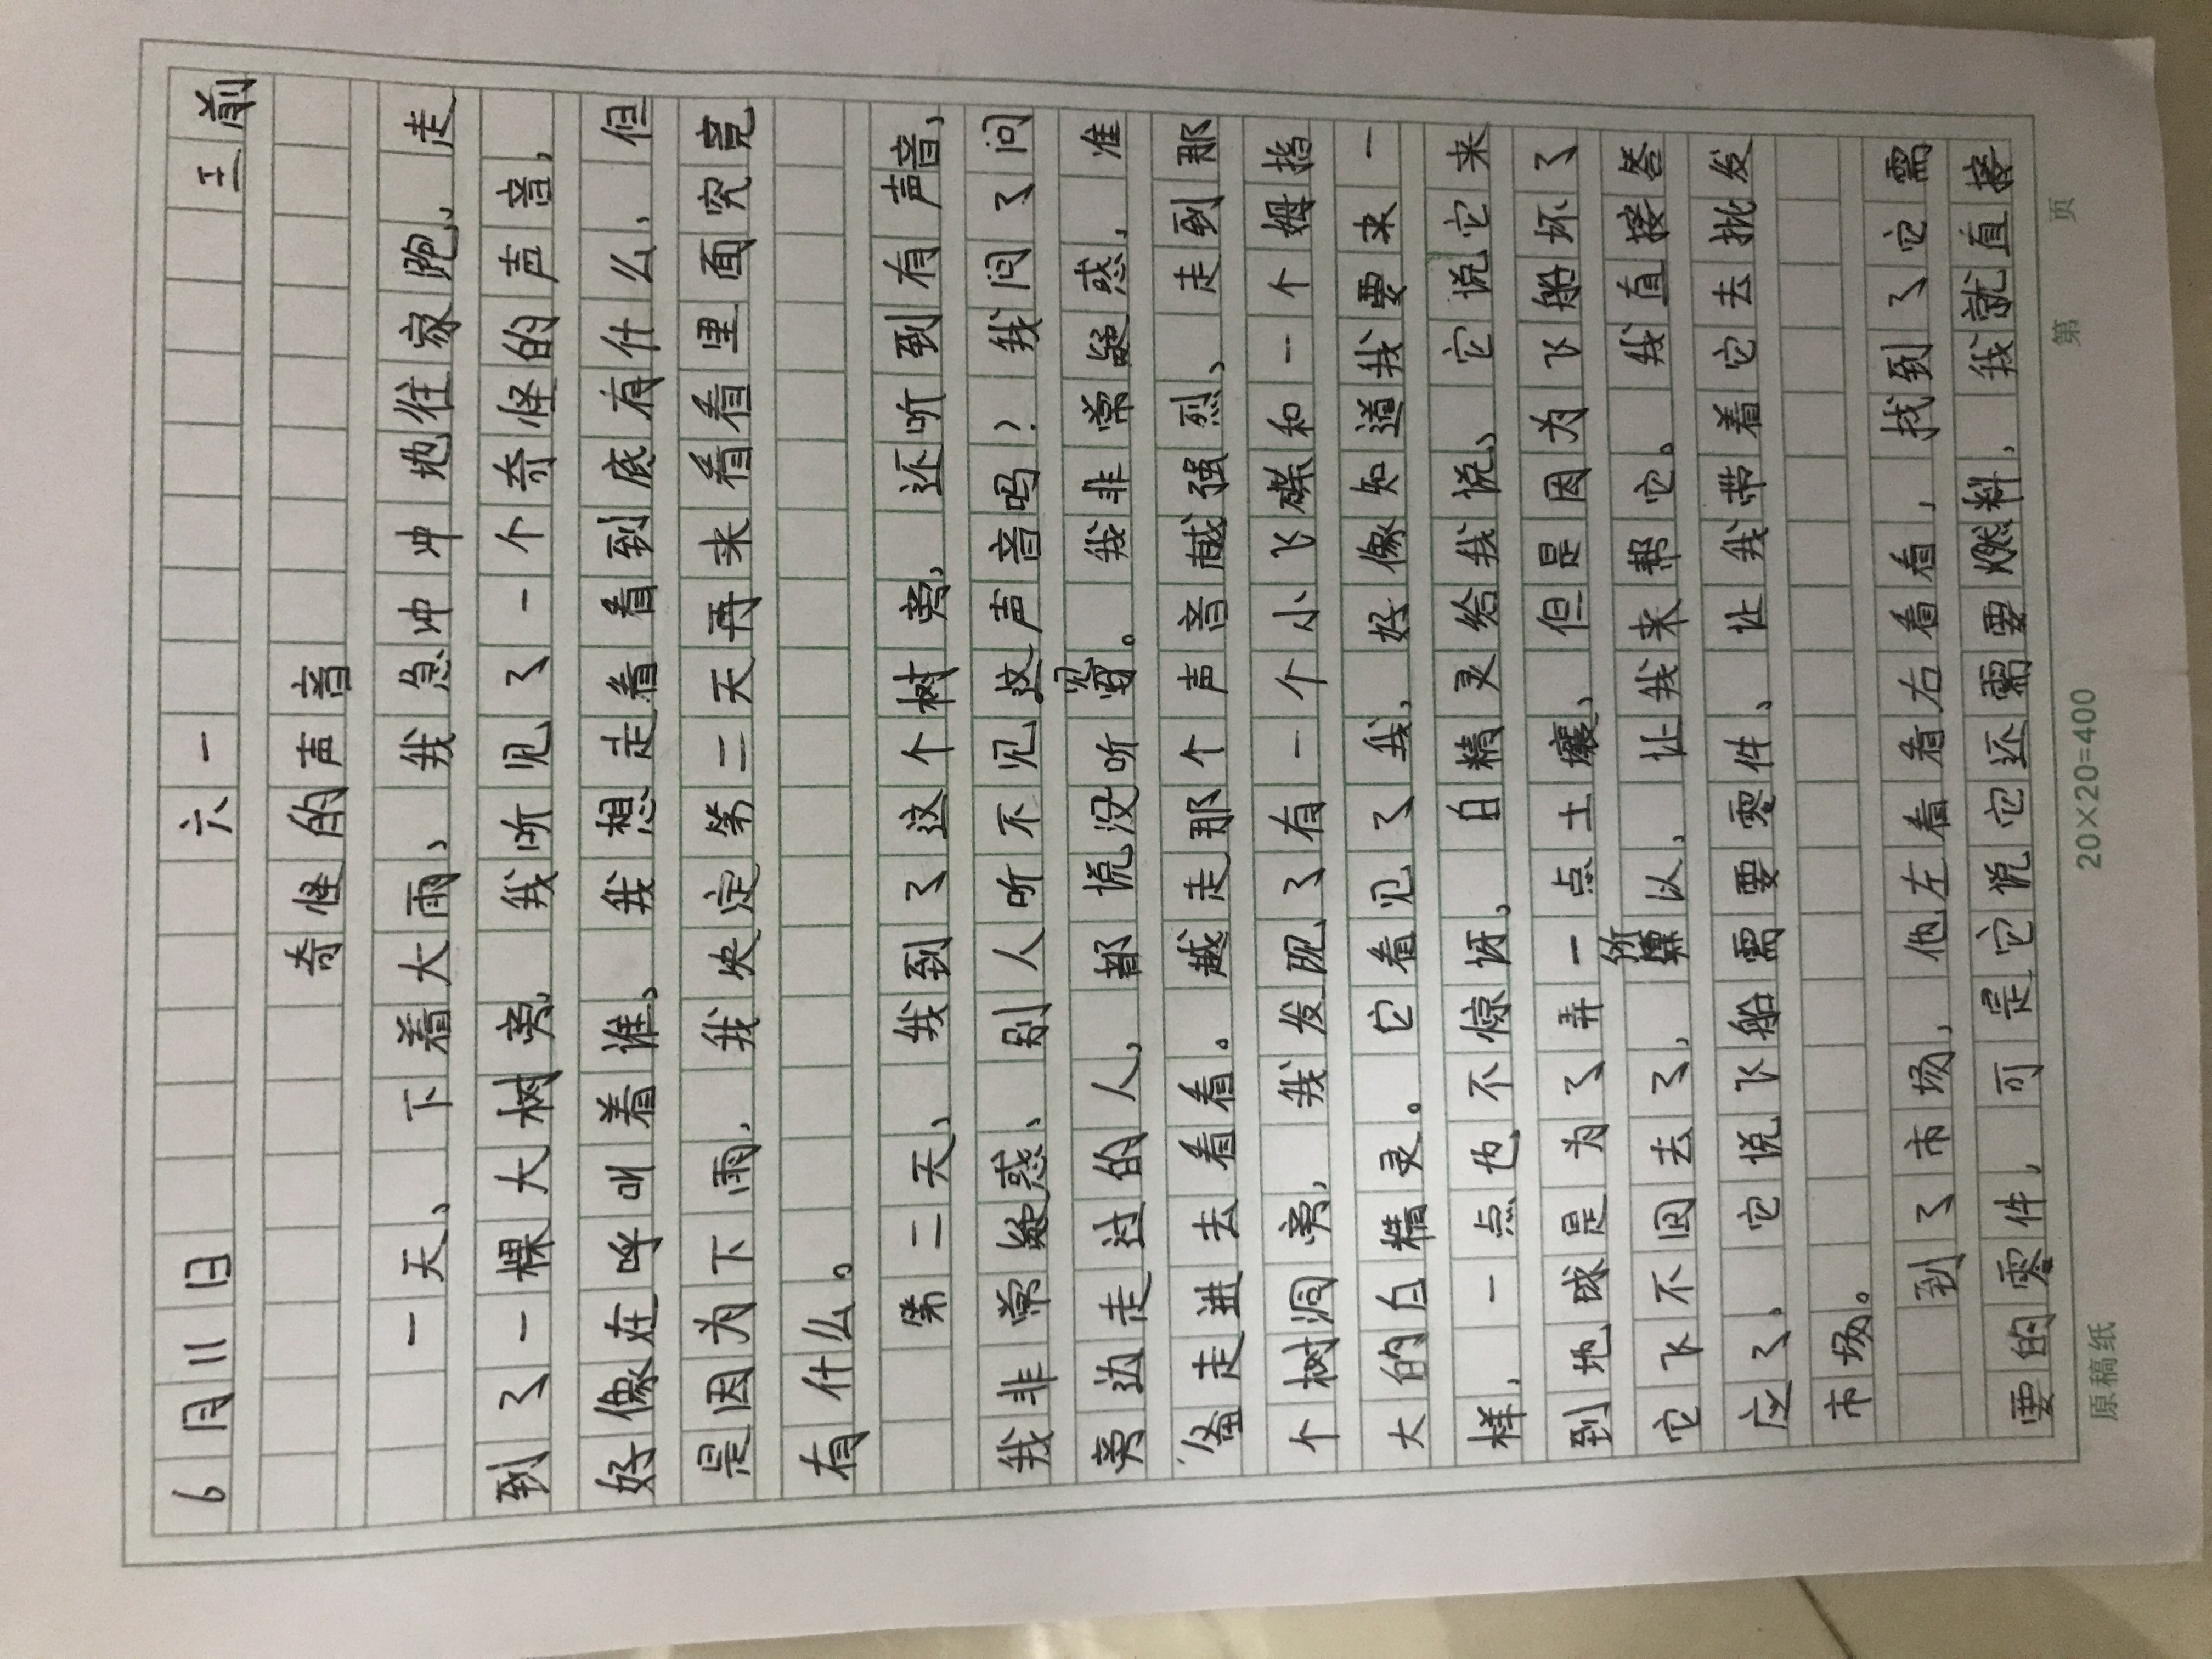 6月11日 六一 王前
奇怪的声音
一天、下着大雨、我急冲冲地往家跑、走
到了一棵大树旁，我听见了一个奇怪的声音，
好像在呼叫着谁。我想走看看到底有什么，但
是因为下雨，我央定第二天再来看看里面究竟
有什么。
第二天、我到了这个树旁，还听到有声音，
我非常疑惑、别人听不见这声音吗？我问了问
旁边走过的人，都说没听见。我非常疑惑，准
备走进去看看。越走那个声音越强烈、走到那
个树洞旁，我发现了有一个小飞碟和一个姆指
大的白精灵。它看见了我，好像知道我要来一
样，一点也不惊讶，白精灵给我说、它说它来
到地球是为了弄一点土壤，但是因为飞船坏了
它飞不回去了，所以，让我来帮它。我直接答
应了，它说飞船需要零件、让我带着它去批发
市场。
到了市场，他左看看右看看，找到了它需
要的零件，可是它说它还需要燃料，我就直接
原稿纸 20×20=400 第 页